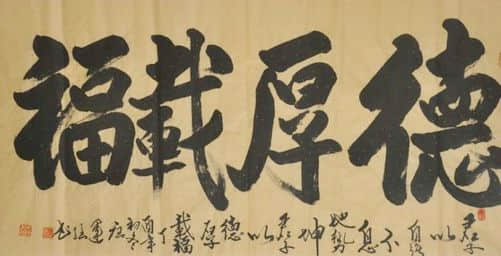 德厚載福
君子以自强不息地势坤君子以德厚載福丁酉年初冬